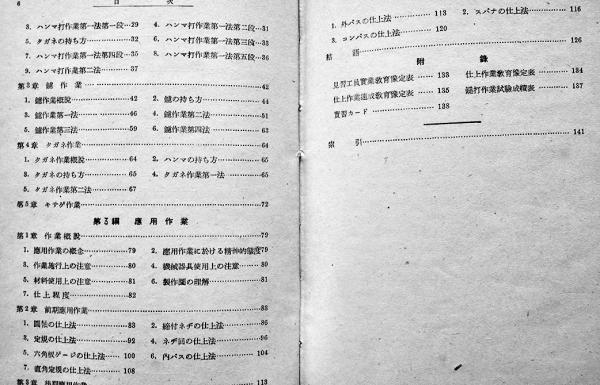 6 目次
3. ハンマ打作業第一法第一段…29 4. ハンマ打作業第一法第二段…31
5. タガネの持ち方…32 6. ハンマ打作業第一法第三段…33
7. ハンマ打作業第一法第四段…35 8. ハンマ打作業第一法第五段…36
9. ハンマ打作業第二法…37
第3章 鑢作業…42
1. 鑢作業概説…42 2. 鑢の持ち方…44
3. 鑢作業第一法…46 4. 鑢作業第二法…51
5. 鑢作業第三法…59 6. 鑢作業第四法…63
第4章 タガネ作業…64
1. タガネ作業概説…64 2. ハンマの持ち方…65
3. タガネの持ち方…65 4. タガネ作業第一法…65
5. タガネ作業第二法…67
第5章 キサゲ作業…72
第3編 應用作業
第1章 作業概説…79
1. 應用作業の概念…79 2. 應用作業に於ける精神的態度79
3. 作業施行上の注意…80 4. 機械器具使用上の注意…80
5. 材料使用上の注意…81 6. 製作圖の理解…81
7. 仕上程度…82
第2章 前期應用作業…83
1. 圓筒の仕上法…83 2. 締付ネヂの仕上法…86
3. 定規の仕上法…92 4. ネヂ回の仕上法…96
5. 六角板ゲージの仕上法…100 6. 内パスの仕上法…104
7. 直角定規の仕上法…108
第3章 後期應用作業…113
1. 外パスの仕上法…113 2. スパナの仕上法…116
3. コンパスの仕上法…120
結語…126
附錄
見習工員實業教育豫定表…133 仕上作業教育豫定表…134
仕上作業速成教育豫定表…135 鎚打作業試驗成績表…137
實習カード…138
索引…141